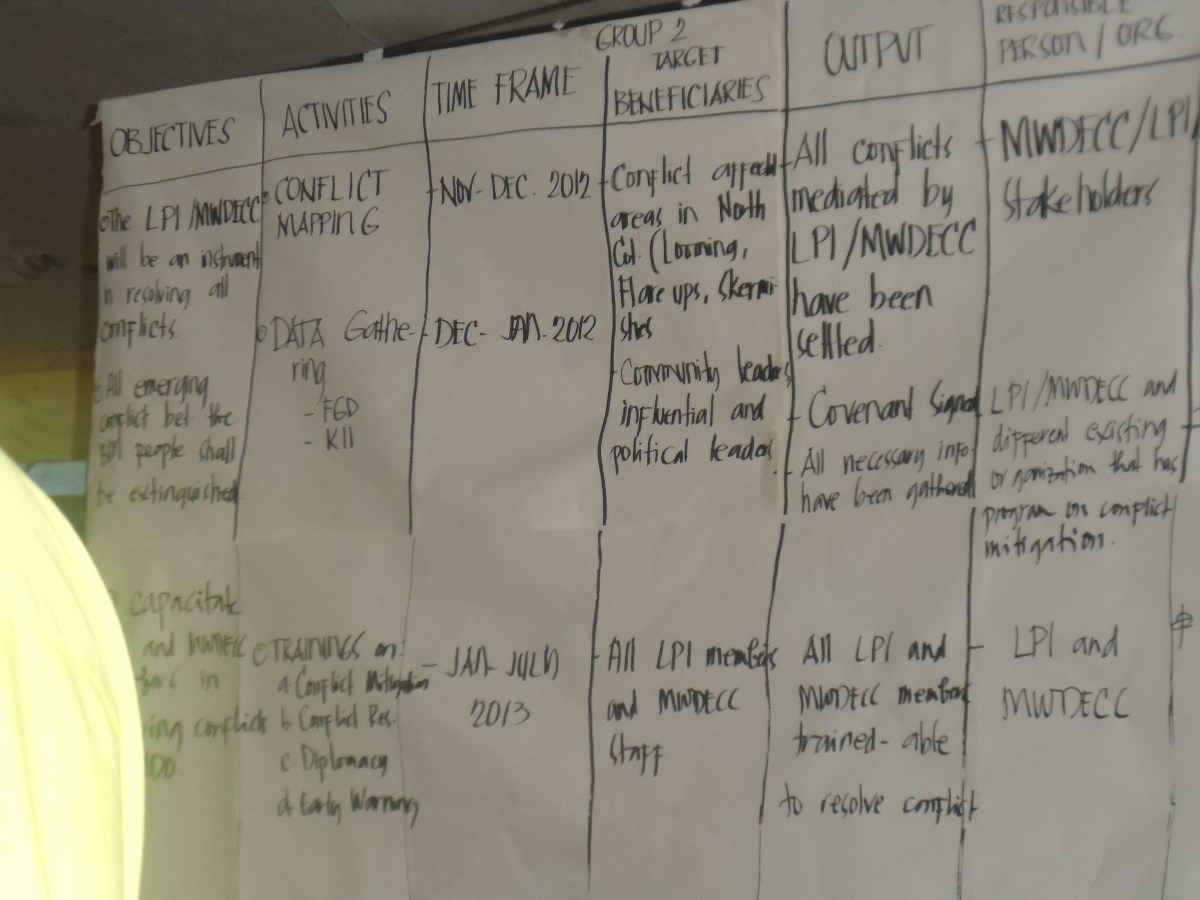 GROUP 2
OBJECTIVES
The LPI/MWDECC
will be an instrument
in resolving all
conflicts.
All emerging
conflict bet. the
people shall
be extinguished
capacitate
and MWDECC
in
conflicts
ACTIVITIES
CONFLICT
MAPPING
DATA Gathe-
ring
- FGD
- KII
TRAININGS on:
a. Conflict Mitigation
b. Conflict Res.
c. Diplomacy
d. Early Warning
TIME FRAME
- NOV- DEC. 2012
- DEC- JAN. 2012
- JAN- JULY
2013
TARGET
BENEFICIARIES
- Conflict affected
areas in North
Cot. (Looming,
Flare ups, Skermi-
shes
- Community leaders
influential and
political leaders.
- All LPI members
and MWDECC
Staff
OUTPUT
- All conflicts
mediated by
LPI/MWDECC
have been
settled.
- Covenant Signed
- All necessary info
have been gathered
All LPI and
MWDECC members
trained- able
to resolve conflict
RESPONSIBLE
PERSON/ORG.
- MWDECC/LPI/
Stakeholders
LPI/MWDECC and
different existing
organization that has
program on conflict
mitigation.
- LPI and
MWDECC